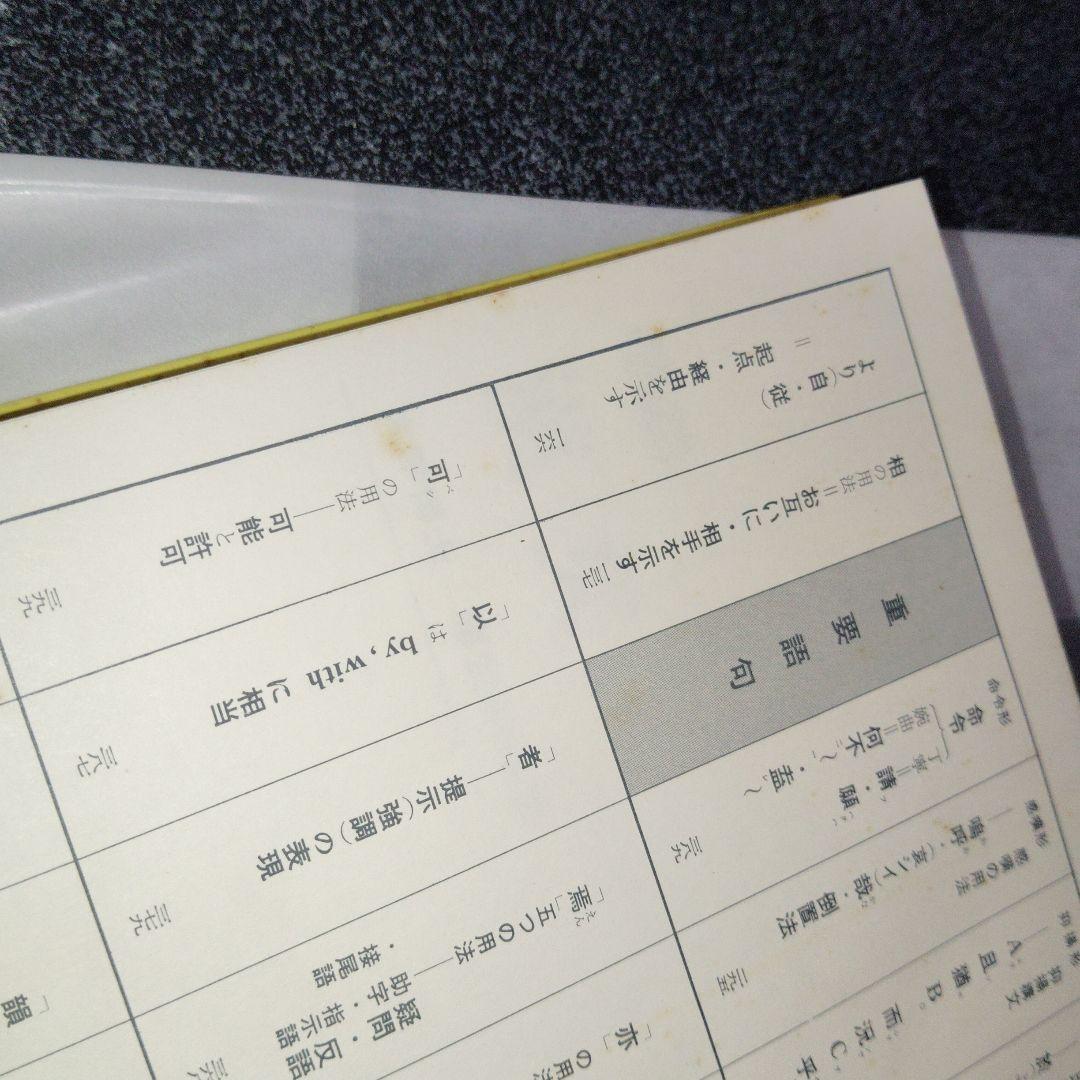 より(自・従)
=起点・経由を示す
一六六
相の用法=お互いに・相手を示す
一三七
重要語句
命令形
命令
丁寧=請・願
婉曲=何不〜・盍〜
二八九
感嘆形
感嘆の用法
嗚呼・(矣)・哉・倒置法
二九五
抑揚形
抑揚漢文
A且猶B。
而況C乎
「可」の用法——可能と許可
二九九
「以」は by, with に相当
二八七
「者」——提示(強調)の表現
二七九
「焉」五つの用法——疑問・反語
・指示語
・助字
・接尾語
「亦」の用法
「韻